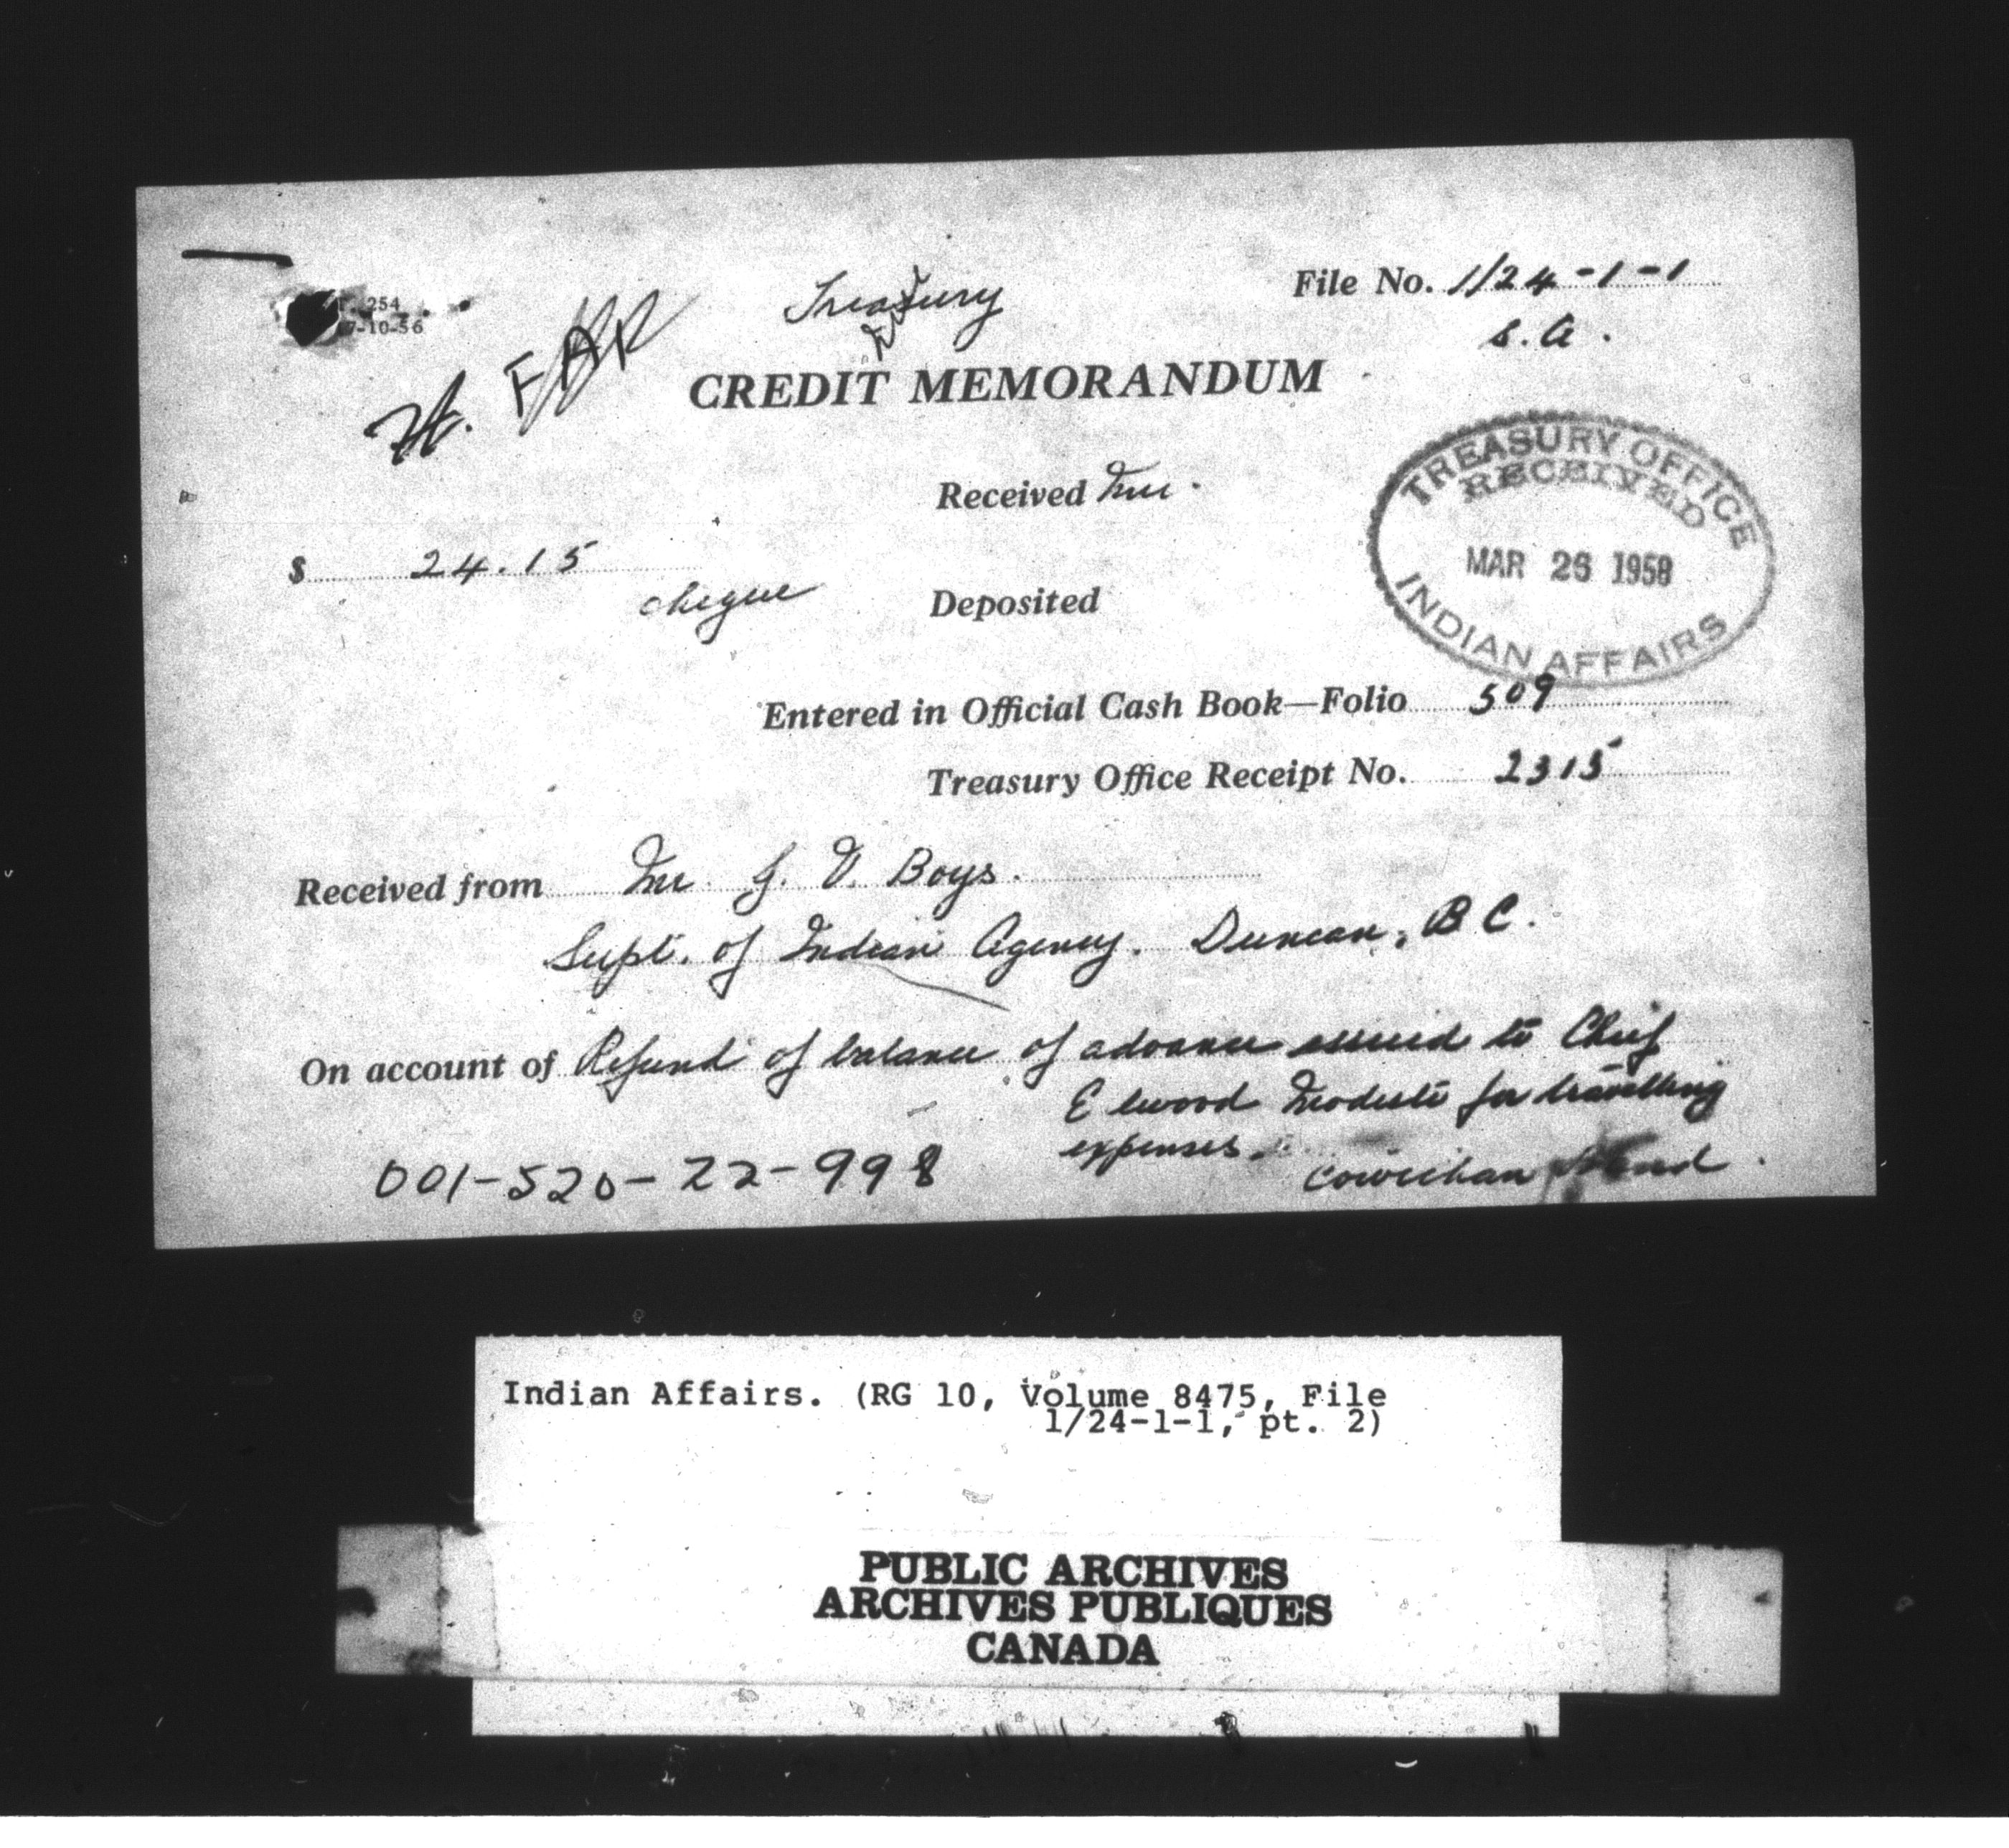 254
7-10-56
H. FAR
Treasury
File No. 1/24-1-1
S.A.
CREDIT MEMORANDUM
TREASURY OFFICE
RECEIVED
MAR 26 1958
INDIAN AFFAIRS
Received
$ 24.15
cheque
Deposited
Entered in Official Cash Book—Folio 509
Treasury Office Receipt No. 2315
Received from Mr. J. V. Boys.
Supt. of Indian Agency. Duncan, B C.
On account of Refund of balance of advance issued to Chief
Elwood Modeste for travelling
expenses.
Cowichan Band.
001-520-22-998
Indian Affairs. (RG 10, Volume 8475, File
1/24-1-1, pt. 2)
PUBLIC ARCHIVES
ARCHIVES PUBLIQUES
CANADA